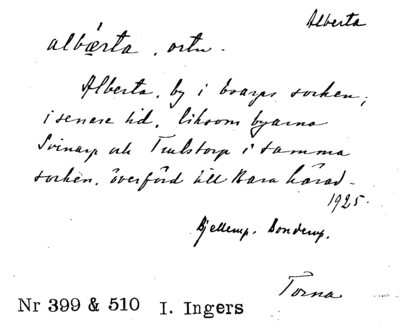 Alberta
albǽrta, ortn.
Alberta, by i Brågarps socken;
i senare tid, liksom byarna
Svinarp och Trulstorp i samma
socken, överförd till Bara härad.
1925.
Bjellerup. Bonderup.
Torna
Nr 399 & 510 I. Ingers